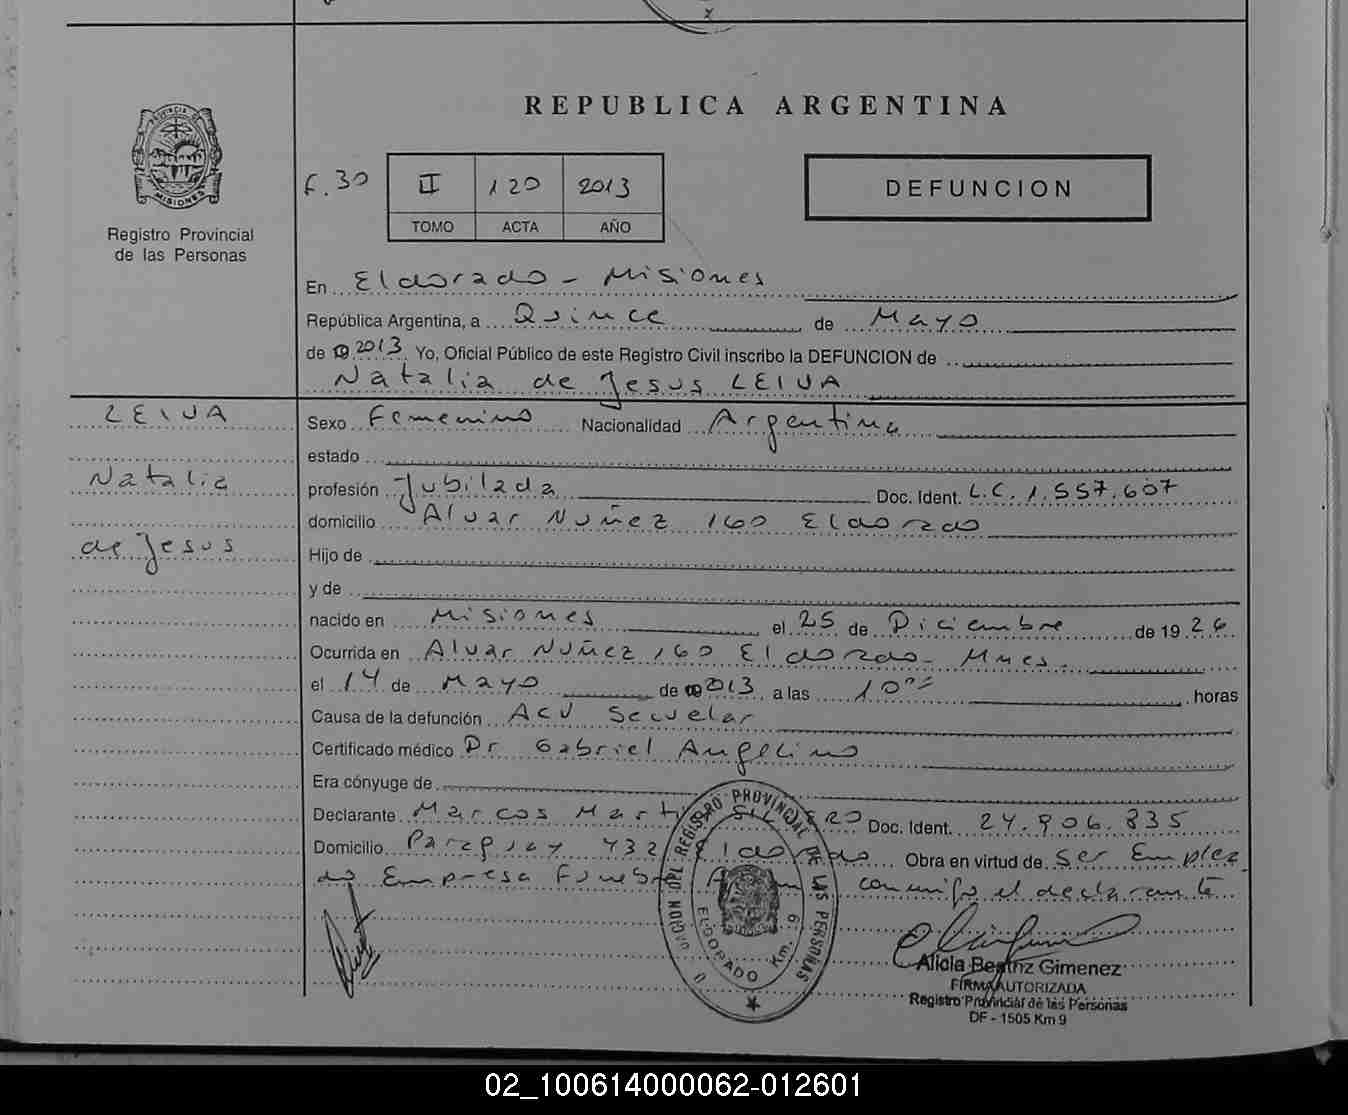 REPUBLICA ARGENTINA
PROVINCIA DE
MISIONES
Registro Provincial
de las Personas
F. 30 II 120 2013
TOMO ACTA AÑO
DEFUNCION
En Eldorado - Misiones
República Argentina, a Quince de Mayo
de 2013 Yo, Oficial Público de este Registro Civil inscribo la DEFUNCION de
Natalia de Jesus LEIVA
LEIVA
Natalia
de Jesus
Sexo Femenino Nacionalidad Argentina
estado
profesión Jubilada Doc. Ident. L.C. 1.557.607
domicilio Alvar Nuñez 160 Eldorado
Hijo de
y de
nacido en Misiones el 25 de Diciembre de 1926
Ocurrida en Alvar Nuñez 160 Eldorado - Mnes.
el 14 de Mayo de 2013 a las 10 horas
Causa de la defunción ACV Secuelar
Certificado médico Dr Gabriel Angelino
Era cónyuge de
Declarante Marcos Doc. Ident. 24.906.835
Domicilio Paraguay 732 Eldorado Obra en virtud de ser emplea
do Empresa Funebre el declarante
REGISTRO PROVINCIAL DE LAS PERSONAS
ELDORADO Km. 9
Alicia Beatriz Gimenez
FIRMA AUTORIZADA
Registro Provincial de las Personas
DF - 1505 Km 9
02_100614000062-012601